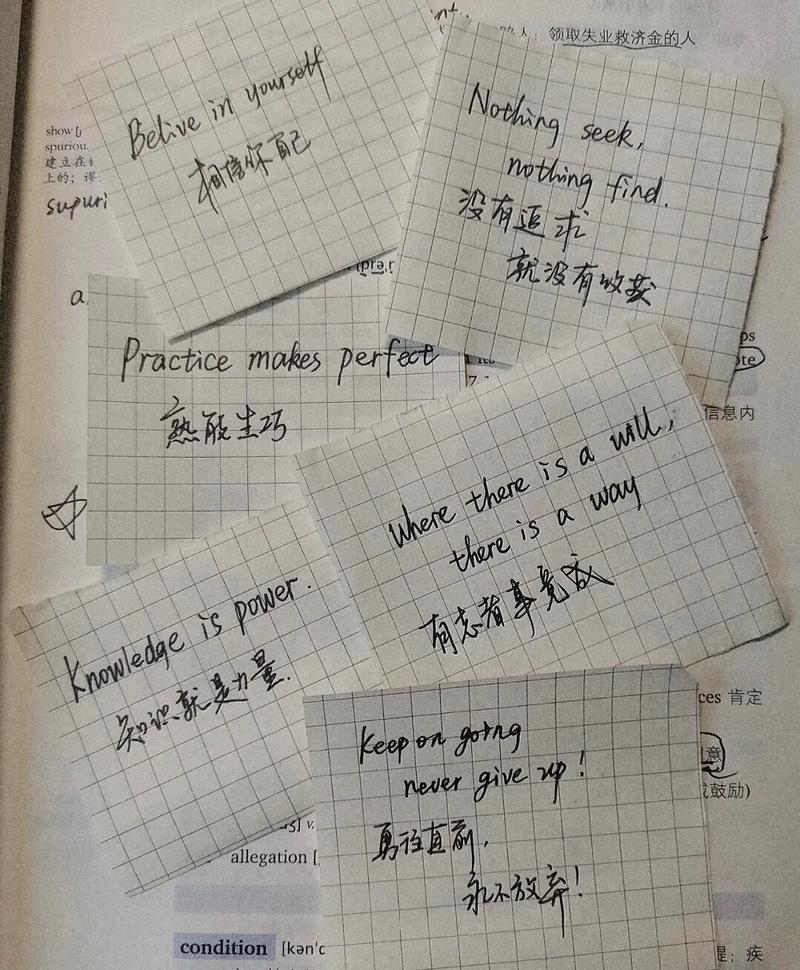 领取失业救济金的人
Belive in yourself
相信你自己
Nothing seek,
nothing find.
没有追求
就没有收获
show
spurious
建立在
上的；谬
supuri
a
Practice makes perfect
熟能生巧
信息内
Where there is a will,
there is a way
有志者事竟成
Knowledge is power.
知识就是力量.
ces 肯定
意
鼓励)
Keep on going
never give up!
勇往直前,
永不放弃!
v.
allegation [
condition [kən'
疾